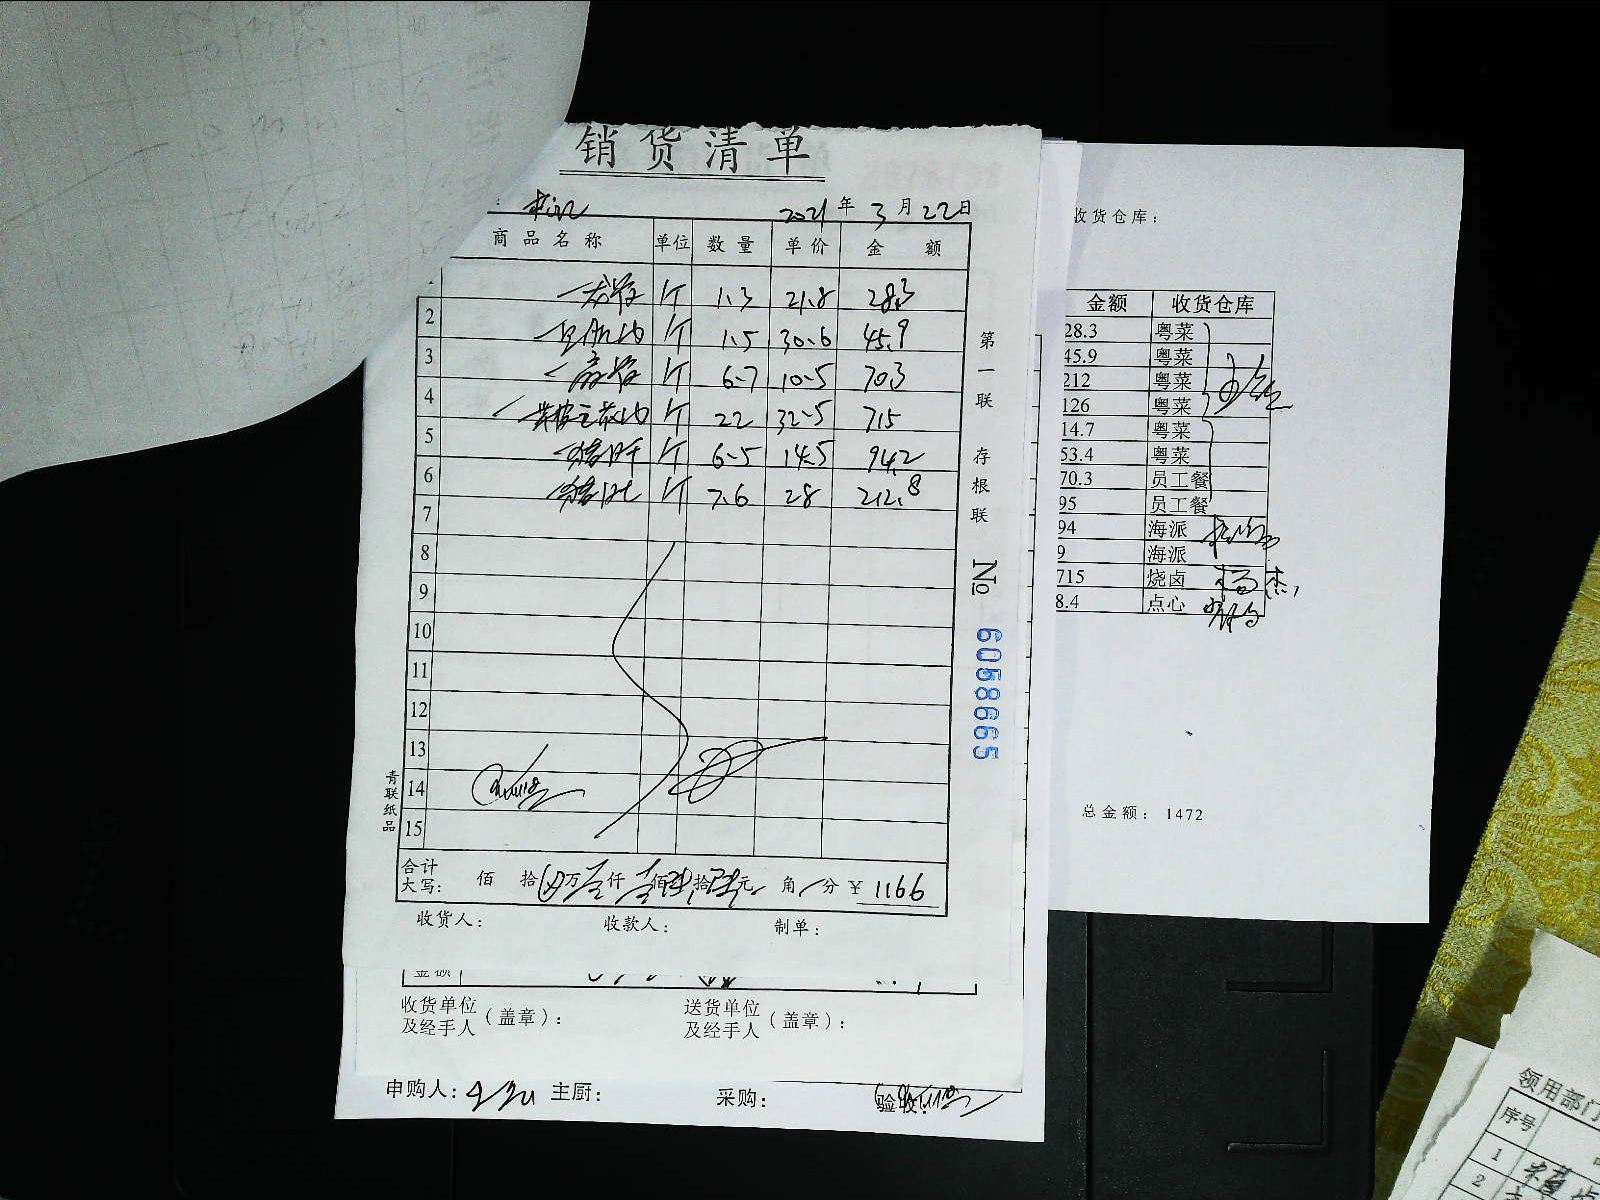 销货清单
2021年3月22日
商品名称 单位 数量 单价 金额
龙骨 斤 1.3 21.8 28.3
2 斤 1.5 30.6 45.9
3 斤 6.7 10.5 70.3
4 斤 22 32.5 715
5 猪肝 斤 6.5 14.5 94.2
6 猪肚 斤 7.6 28 212.8
7
8
9
10
11
12
13
14
15
合计大写: 佰 拾 万壹仟壹佰陆拾陆元 角 分 ¥ 1166
收货人: 收款人: 制单:
青联纸品
第一联 存根联
№ 6058665
金额
收货单位及经手人(盖章): 送货单位及经手人(盖章):
申购人: 主厨: 采购: 验收:
收货仓库:
金额 收货仓库
28.3 粤菜
45.9 粤菜
212 粤菜
126 粤菜
14.7 粤菜
53.4 粤菜
70.3 员工餐
95 员工餐
94 海派
9 海派
715 烧卤 杨杰
8.4 点心
总金额: 1472
领用部门
序号
1
2